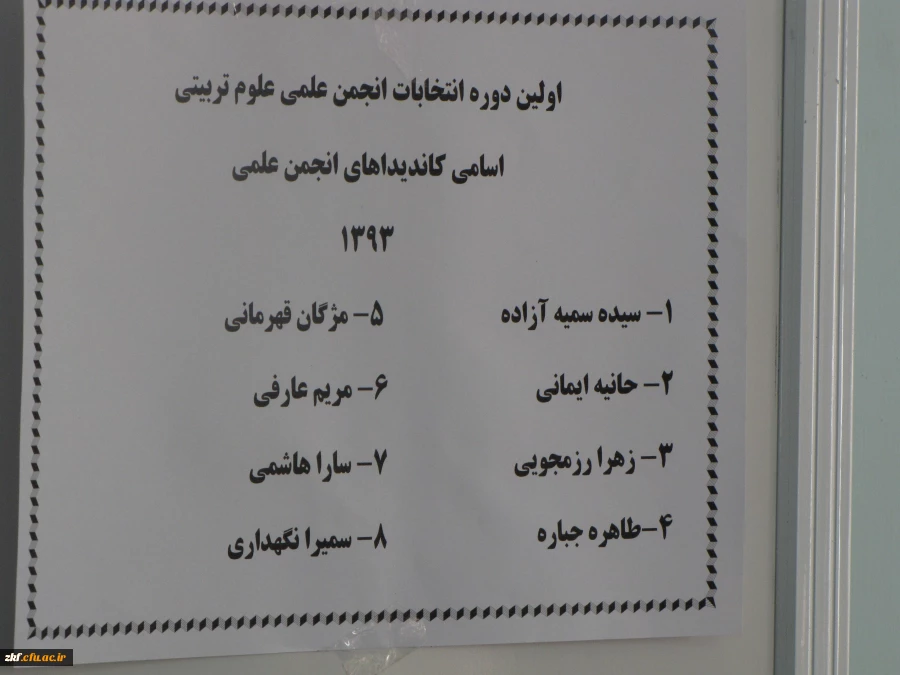 اولین دوره انتخابات انجمن علمی علوم تربیتی
اسامی کاندیداهای انجمن علمی
۱۳۹۳
۱- سیده سمیه آزاده
۲- حانیه ایمانی
۳- زهرا رزمجویی
۴-طاهره جباره
۵- مژگان قهرمانی
۶- مریم عارفی
۷- سارا هاشمی
۸- سمیرا نگهداری
zkf.cfu.ac.ir